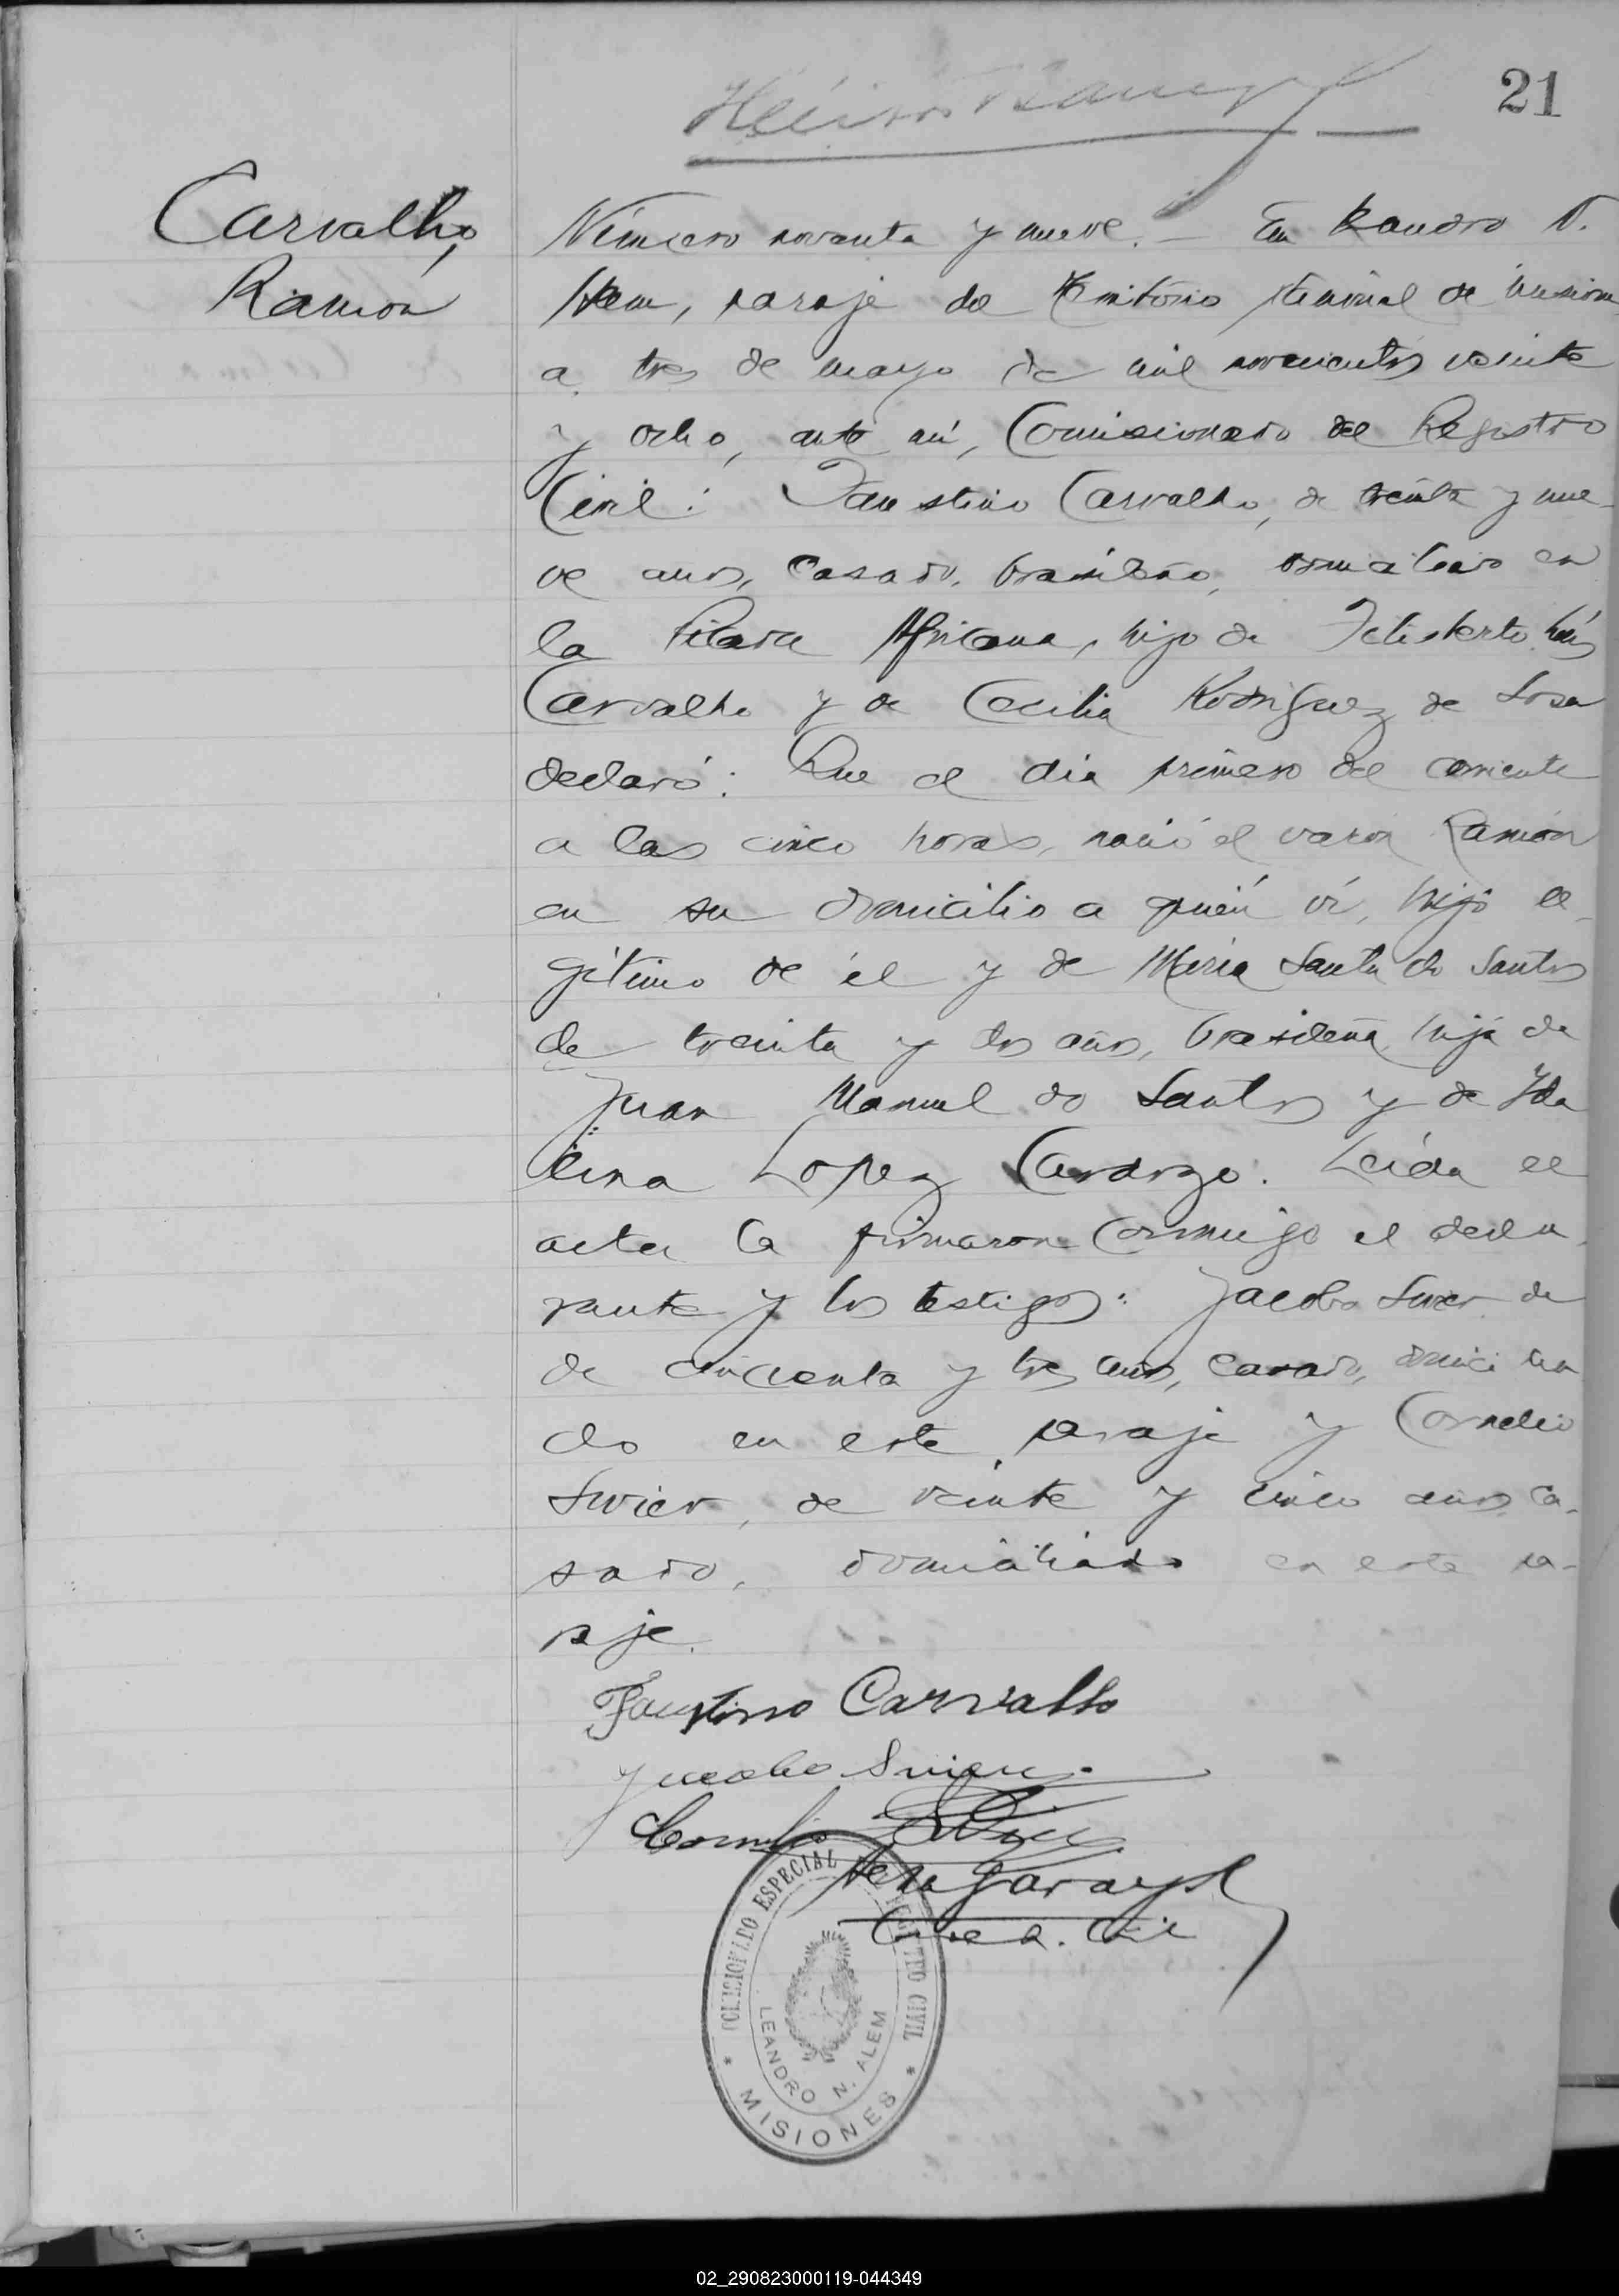 21
Carvalho,
Ramón
Número noventa y nueve. — En Leandro N.
Alem, paraje del Territorio Nacional de Misiones
a tres de mayo de mil novecientos veinte
y ocho, ante mí, Comisionado del Registro
Civil: Faustino Carvalho, de treinta y nue-
ve años, casado, brasileño, domiciliado en
la Africana, hijo de Feliberto
Carvalho y de Cecilia Rodriguez de Sosa
declaró: Que el dia primero del corriente
a las cinco horas, nació el varon Ramón
en su domicilio a quién ví, hijo le-
gítimo de él y de Maria Santa do Santos
de treinta y dos años, brasileña, hija de
Juan Manuel do Santos y de Ida
lina Lopez Cardozo. Leída el
acta la firmaron conmigo el decla-
rante y los testigos: Jacobo de
de cincuenta y tres años, casado, domicilia
do en este paraje y Cornelio
de veinte y cinco años, ca-
sado, domiciliado en este pa-
raje.
Faustino Carvalho
Jacobo
Cornelio
COMISIONADO ESPECIAL DEL REGISTRO CIVIL
LEANDRO N. ALEM
* MISIONES *
02_290823000119-044349